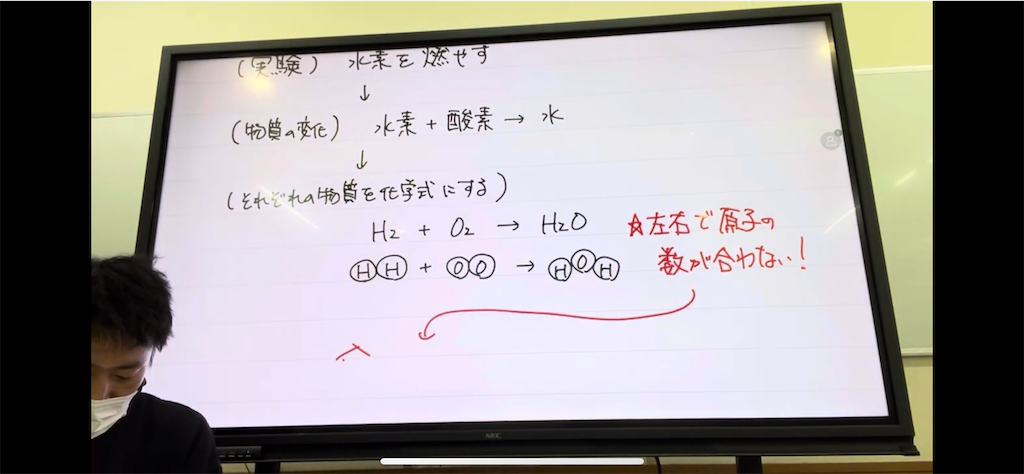 (実験) 水素を燃やす
↓
(物質の変化) 水素 + 酸素 → 水
↓
(それぞれの物質を化学式にする)
H₂ + O₂ → H₂O
☆左右で原子の
数が合わない!
ⒽⒽ + ⓄⓄ → ⒽⓄⒽ
NEC